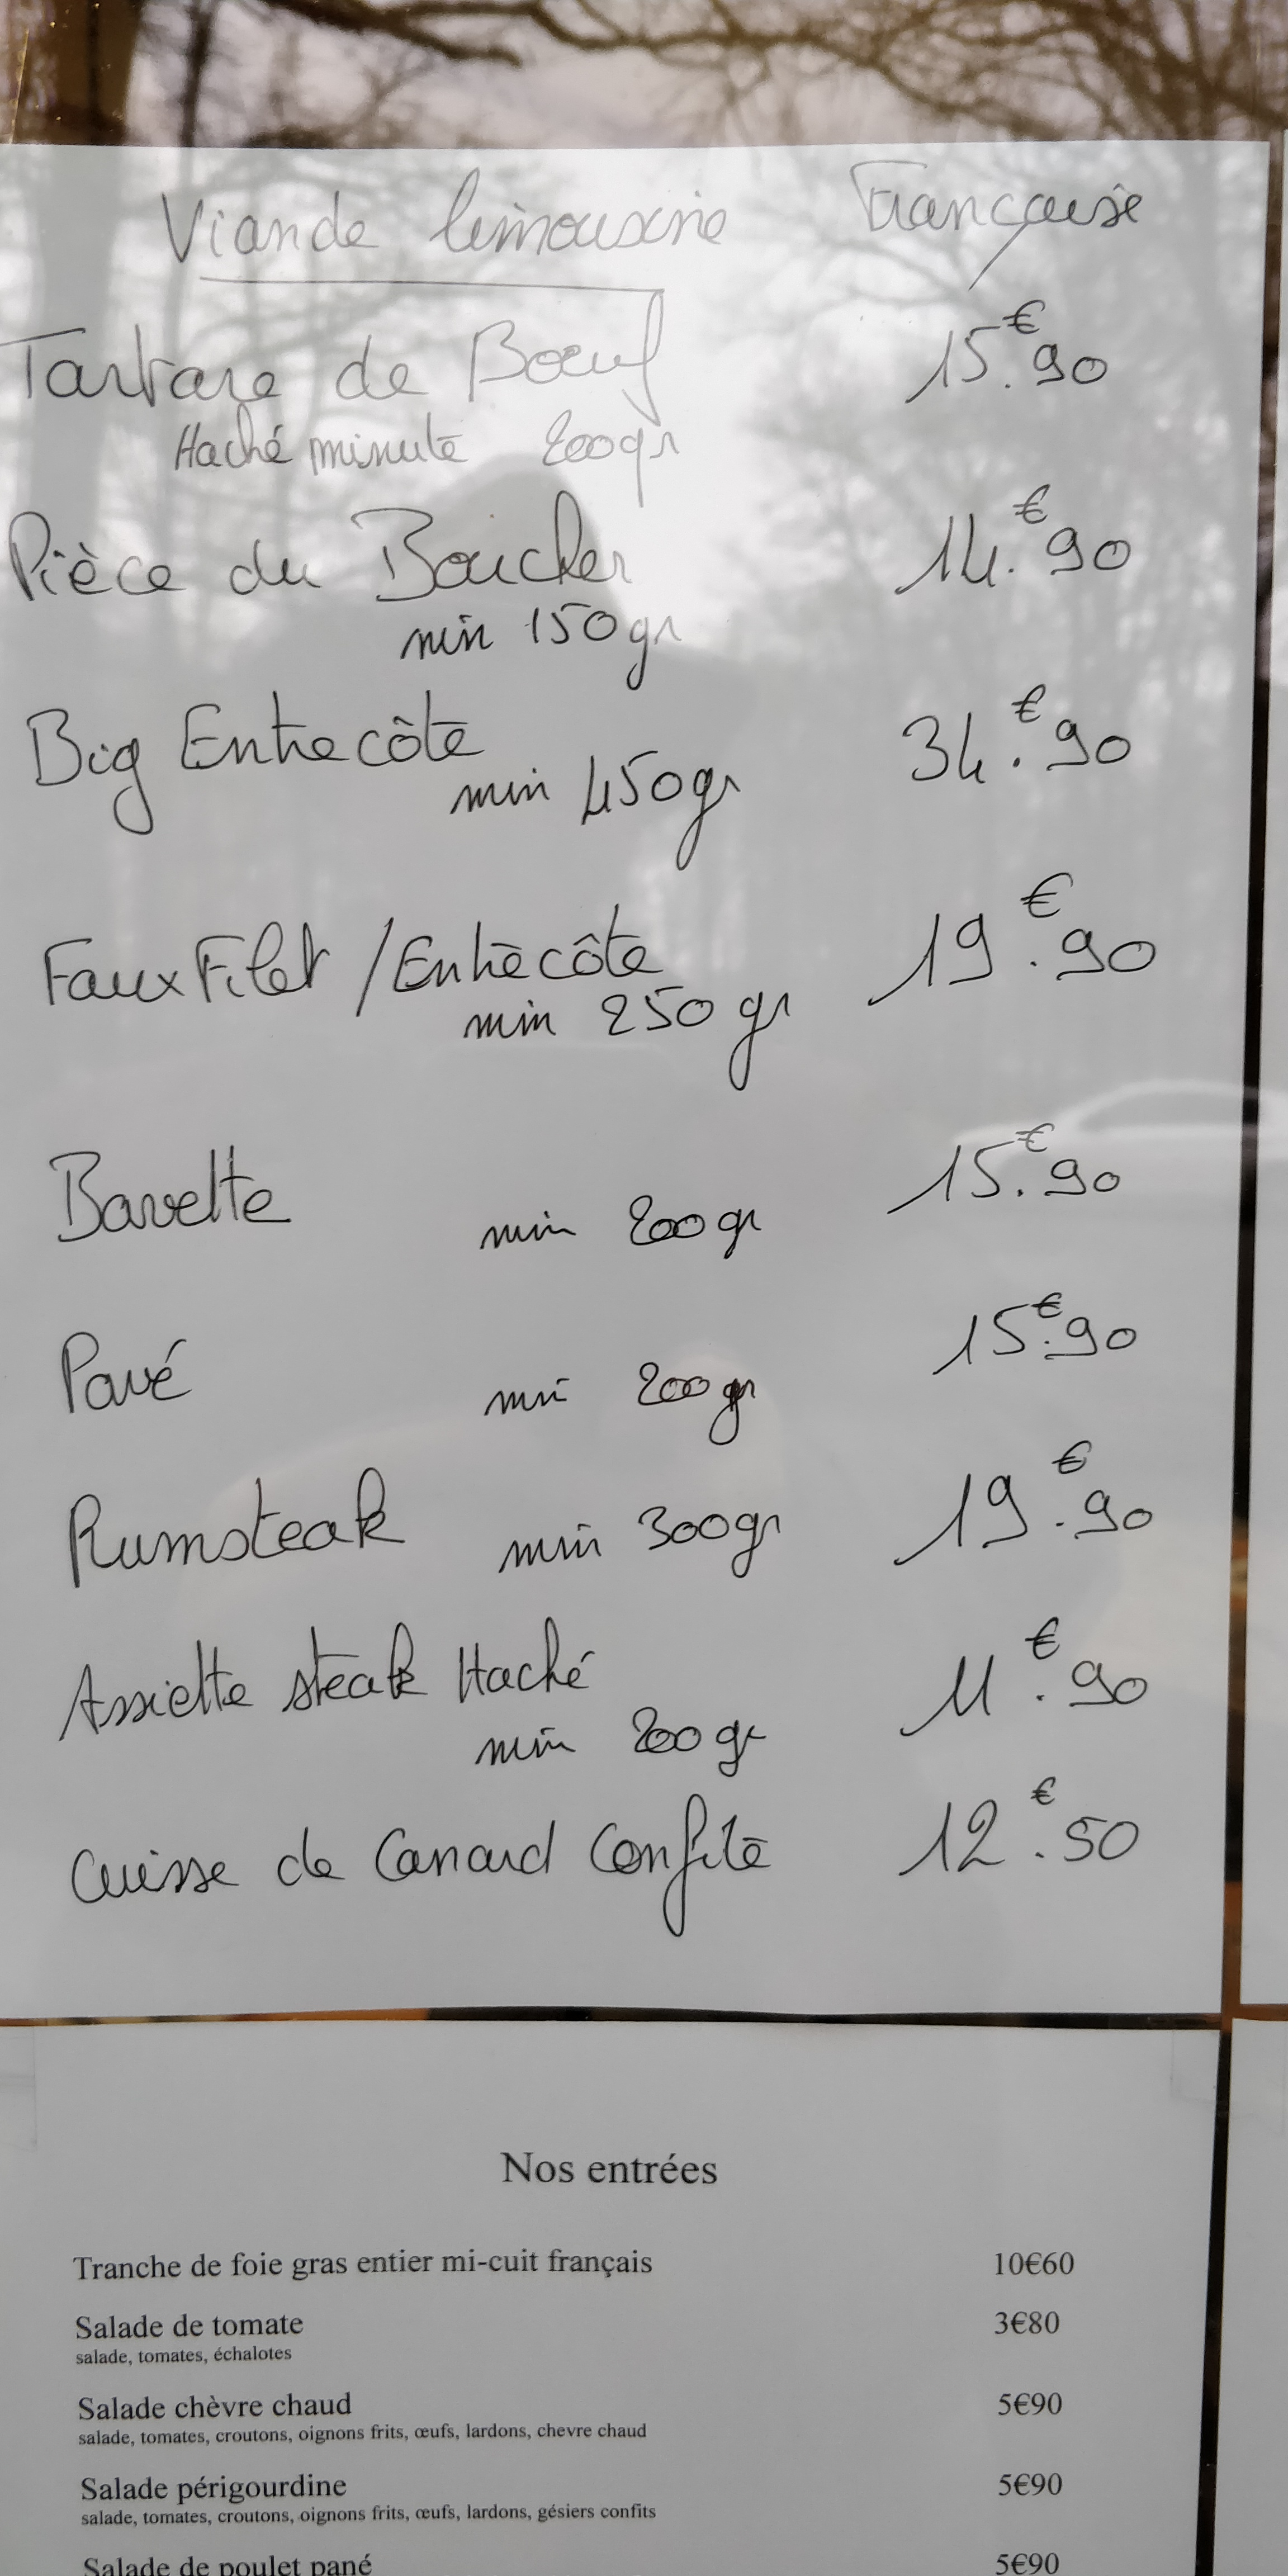 Viande limousine Française
Tartare de Bœuf 15.€90
Haché minute 200gr
Pièce du Boucher 14.€90
min 150gr
Big Entrecôte 34.€90
min 450gr
Faux Filet / Entrecôte 19.€90
min 250 gr
Bavette min 200gr 15.€90
Pavé min 200gr 15.€90
Rumsteak min 300gr 19.€90
Assiette steak Haché 11.€90
min 200gr
Cuisse de Canard Confite 12.€50
Nos entrées
Tranche de foie gras entier mi-cuit français 10€60
Salade de tomate 3€80
salade, tomates, échalotes
Salade chèvre chaud 5€90
salade, tomates, croutons, oignons frits, œufs, lardons, chevre chaud
Salade périgourdine 5€90
salade, tomates, croutons, oignons frits, œufs, lardons, gésiers confits
Salade de poulet pané 5€90